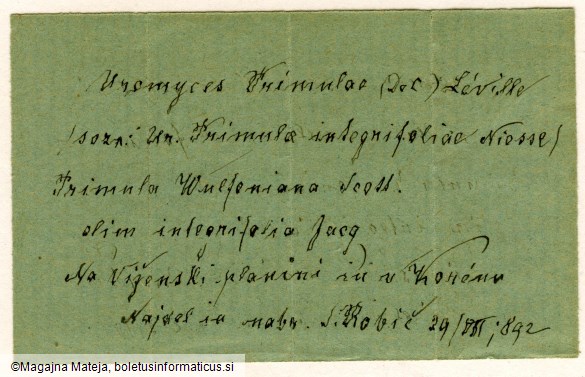 Uromyces Primulae (DeC) Léville
(sozn: Ur. Primulæ integrifoliae Niesse)
Primula Wulfeniana Scott.
olim integrifolia Jacq
Na Viženski planini in v
Našel in nabr. S. Robič 29/VII; 892
©Magajna Mateja, boletusinformaticus.si